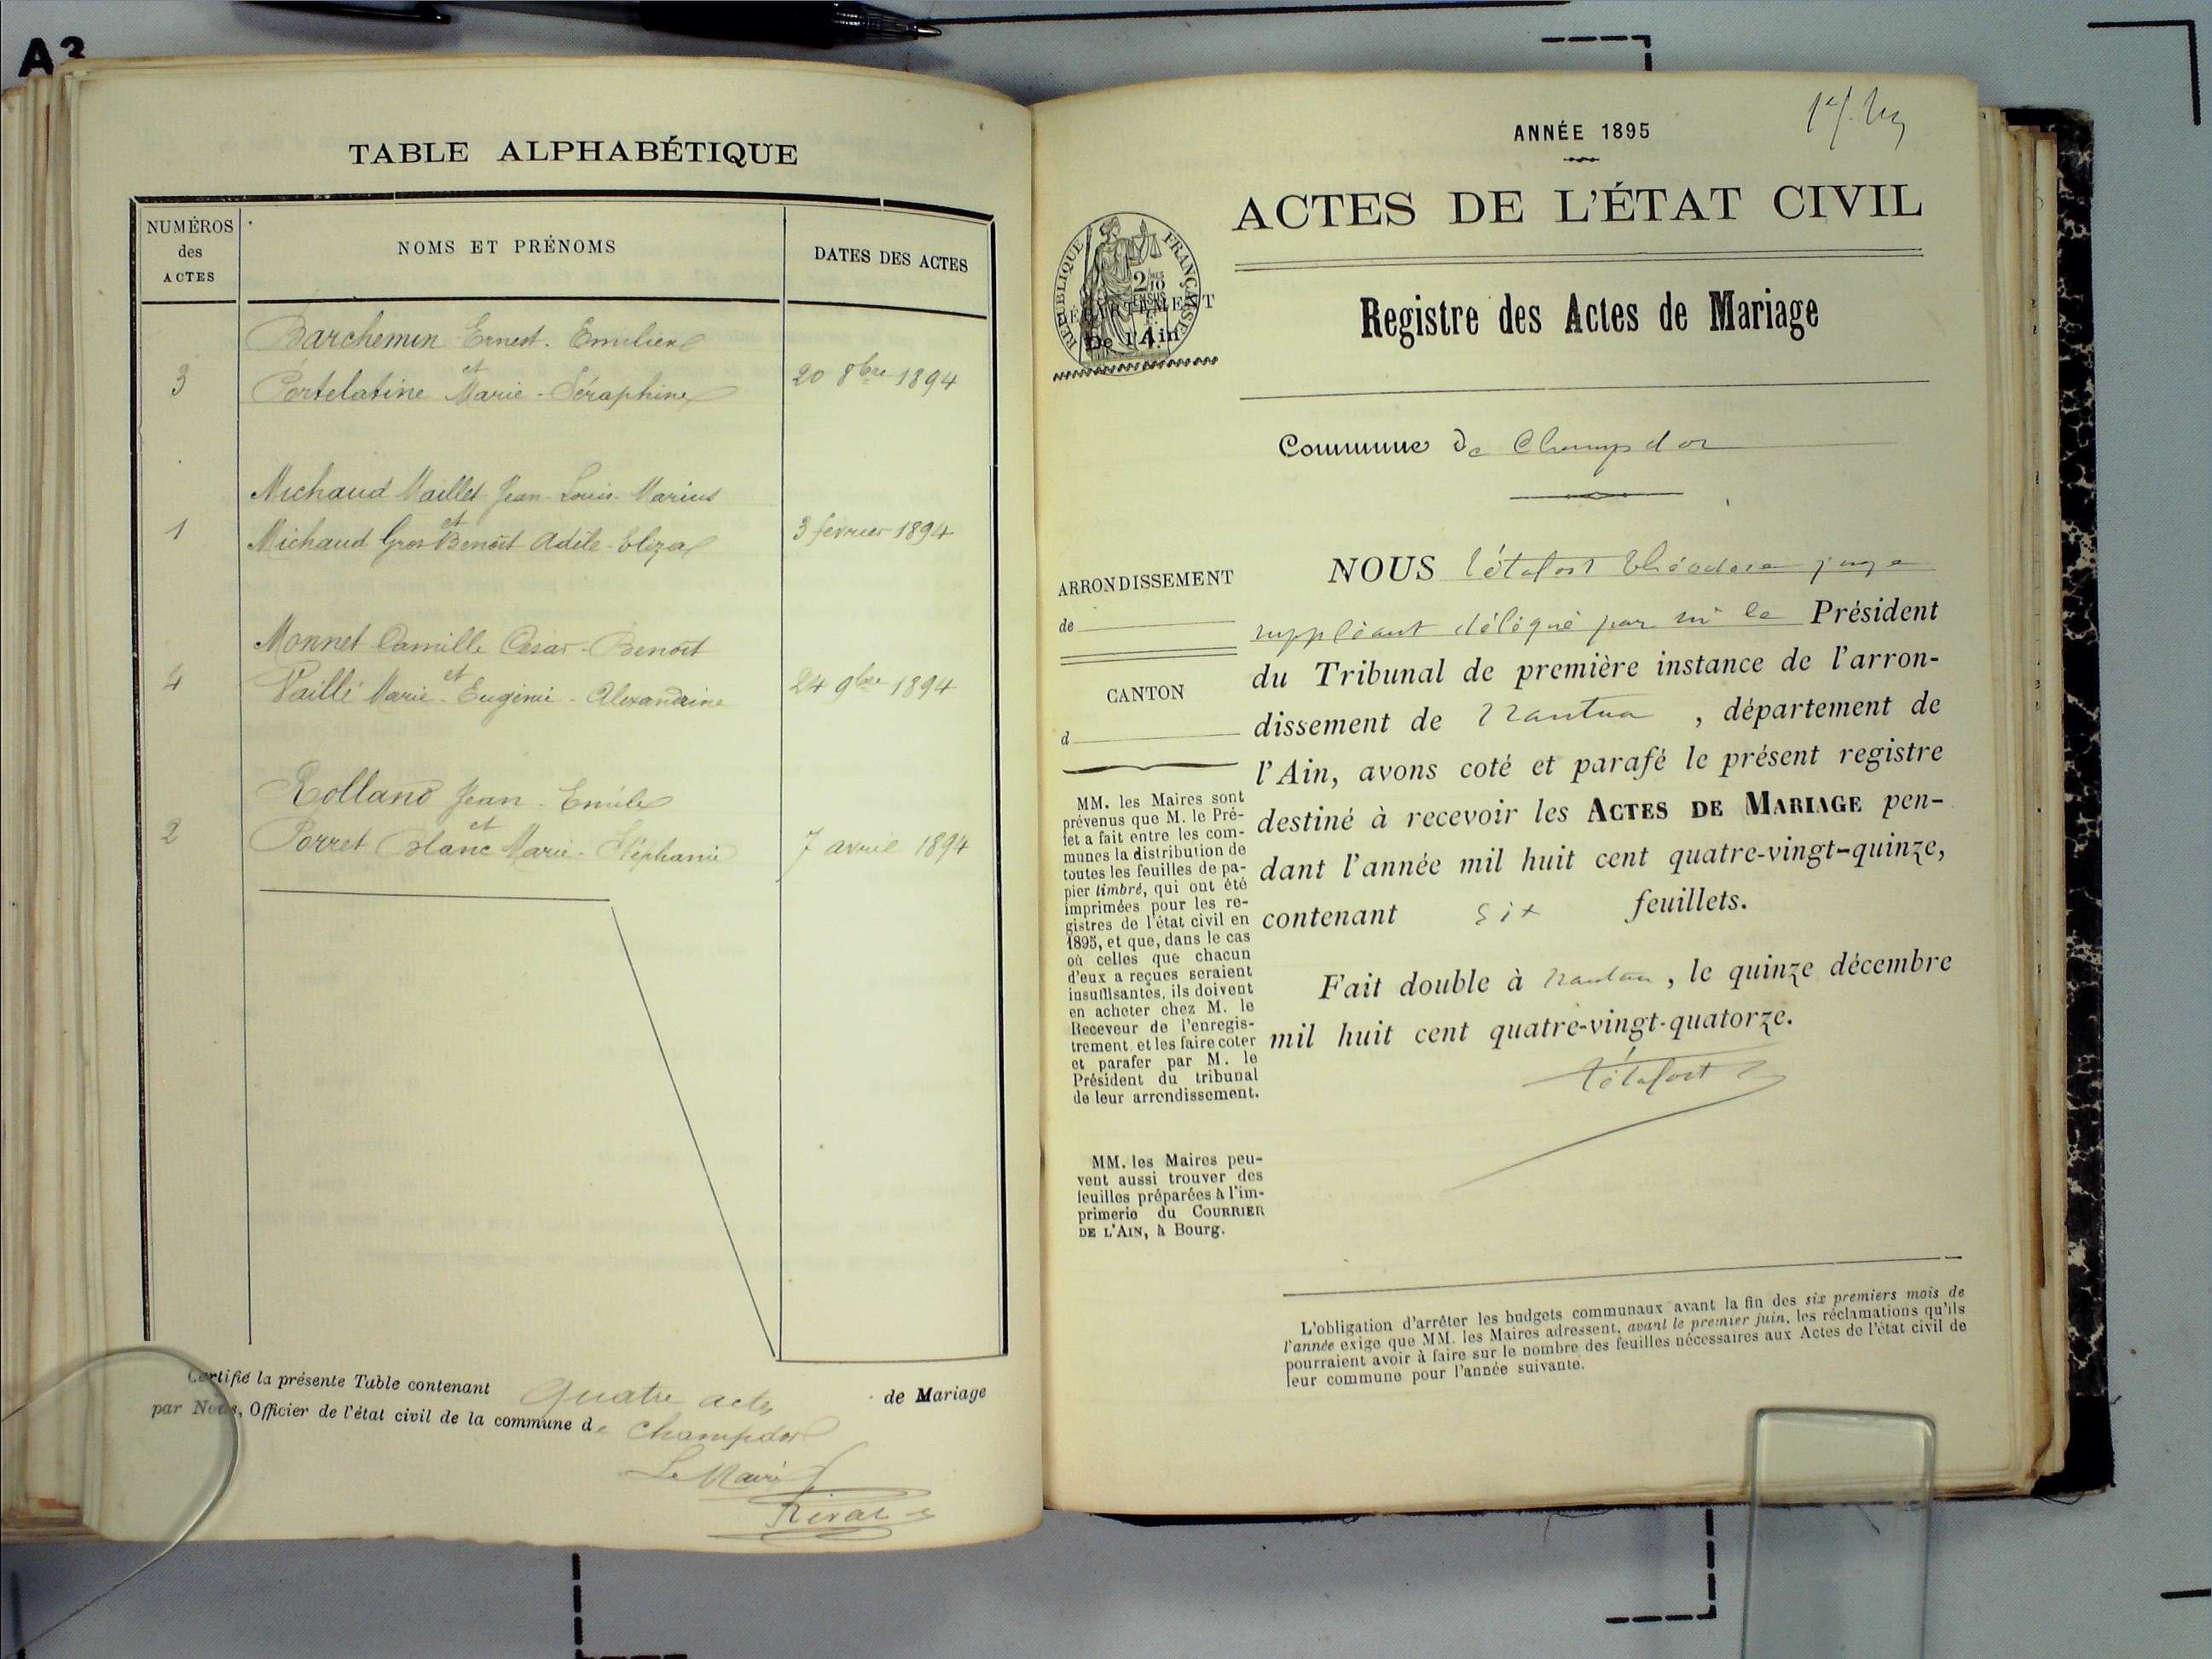 A3
TABLE ALPHABÉTIQUE
NUMÉROS
des
ACTES
NOMS ET PRÉNOMS
DATES DES ACTES
Barchemin Ernest. Emilien
et
3 Portelatine Marie - Séraphine 20 8bre 1894
Michaud Maillet Jean-Louis-Marius
et
1 Michaud Gros Benoit Adèle-Eliza 3 fevrier 1894
Monnet Camille César-Benoit
et
4 Paillé Marie-Eugénie-Alexandrine 24 9bre 1894
Rolland Jean-Emile
et
2 Porret Blanc Marie-Stéphanie 7 avril 1894
Certifié la présente Table contenant quatre actes de Mariage
par Nous, Officier de l'état civil de la commune de Champdor
Le Maire
Rival
ANNÉE 1895
ACTES DE L'ÉTAT CIVIL
RÉPUBLIQUE FRANÇAISE
DÉPARTEMENT
De l'Ain
Registre des Actes de Mariage
Commune de Champdor
ARRONDISSEMENT
de
CANTON
d
MM. les Maires sont
prévenus que M. le Pré-
fet a fait entre les com-
munes la distribution de
toutes les feuilles de pa-
pier timbré, qui ont été
imprimées pour les re-
gistres de l'état civil en
1895, et que, dans le cas
où celles que chacun
d'eux a reçues seraient
insuffisantes, ils doivent
en acheter chez M. le
Receveur de l'enregis-
trement et les faire coter
et parafer par M. le
Président du tribunal
de leur arrondissement.
MM. les Maires peu-
vent aussi trouver des
feuilles préparées à l'im-
primerie du COURRIER
DE L'AIN, à Bourg.
NOUS Tétafort Théodore juge
suppléant délégué par mr le Président
du Tribunal de première instance de l'arron-
dissement de Nantua, département de
l'Ain, avons coté et parafé le présent registre
destiné à recevoir les ACTES DE MARIAGE pen-
dant l'année mil huit cent quatre-vingt-quinze,
contenant six feuillets.
Fait double à Nantua, le quinze décembre
mil huit cent quatre-vingt-quatorze.
Tétafort
L'obligation d'arrêter les budgets communaux avant la fin des six premiers mois de
l'année exige que MM. les Maires adressent, avant le premier juin, les réclamations qu'ils
pourraient avoir à faire sur le nombre des feuilles nécessaires aux Actes de l'état civil de
leur commune pour l'année suivante.